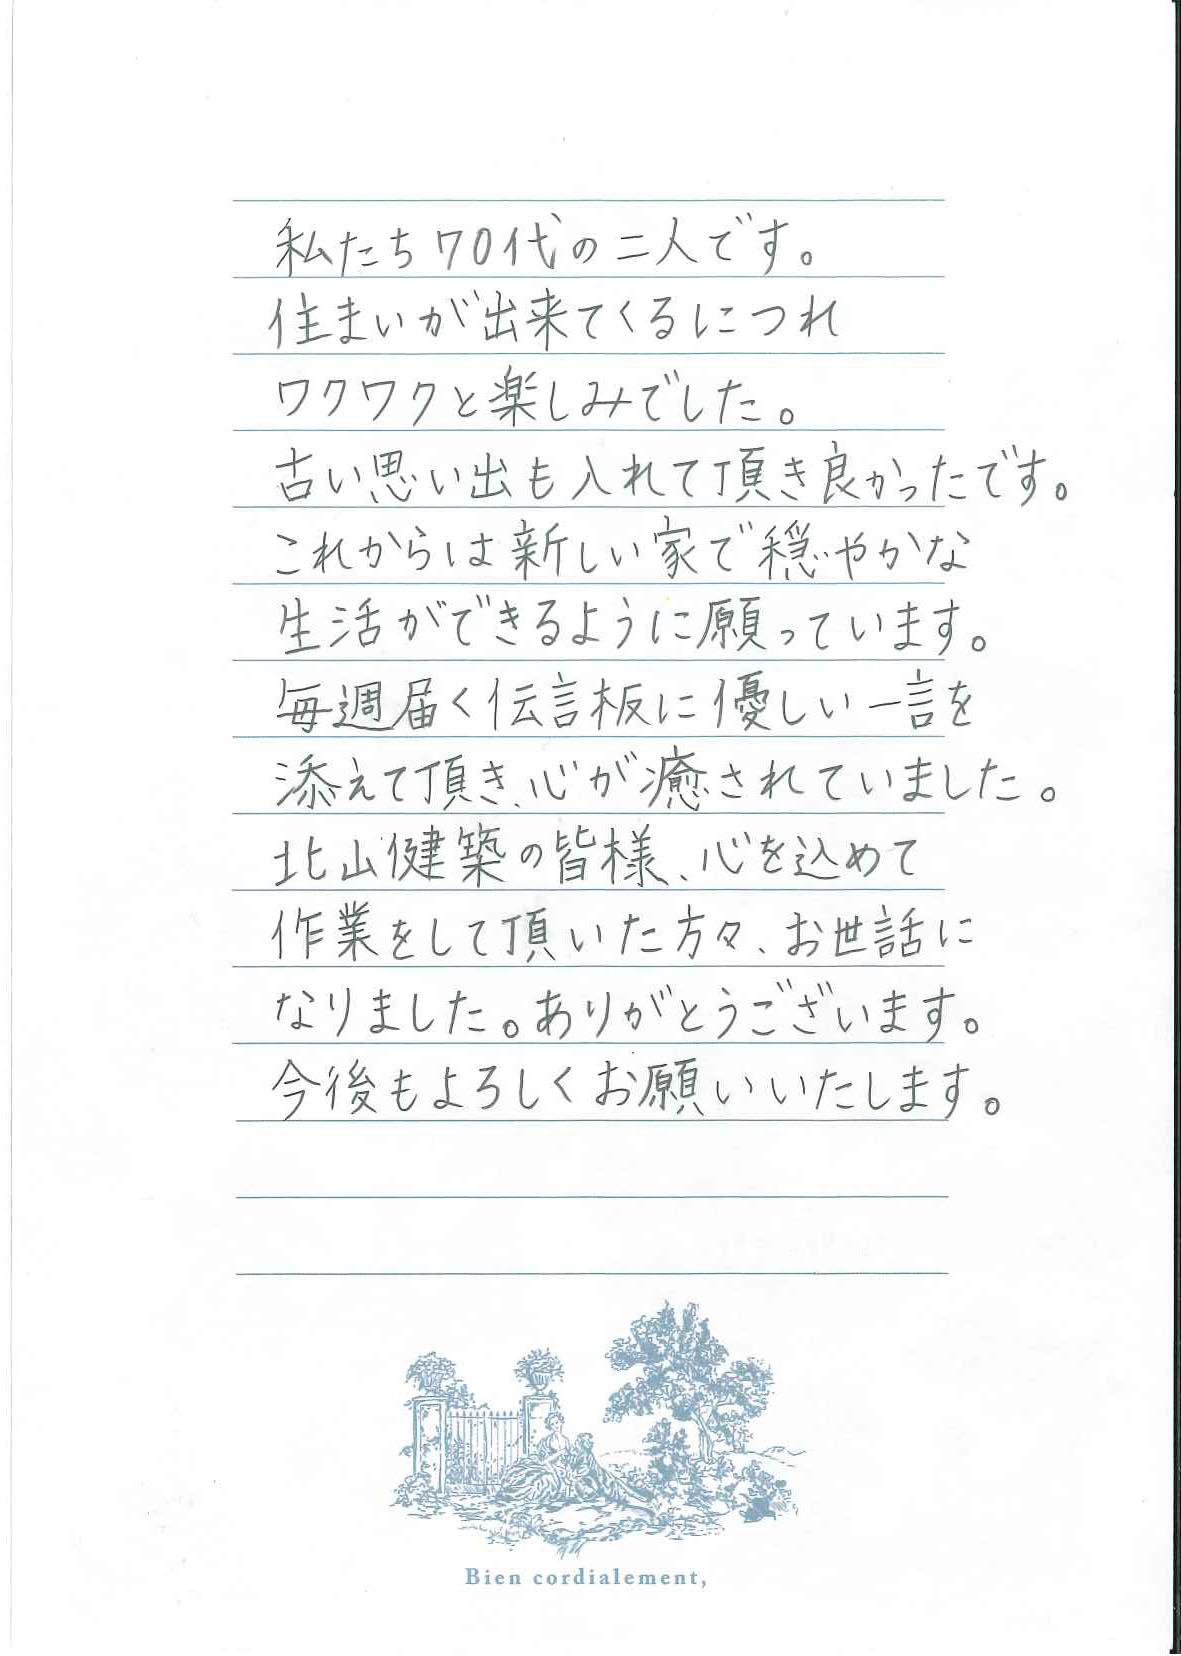 私たち70代の二人です。
住まいが出来てくるにつれ
ワクワクと楽しみでした。
古い思い出も入れて頂き良かったです。
これからは新しい家で穏やかな
生活ができるように願っています。
毎週届く伝言板に優しい一言を
添えて頂き、心が癒されていました。
北山健築の皆様、心を込めて
作業をして頂いた方々、お世話に
なりました。ありがとうございます。
今後もよろしくお願いいたします。
Bien cordialement,